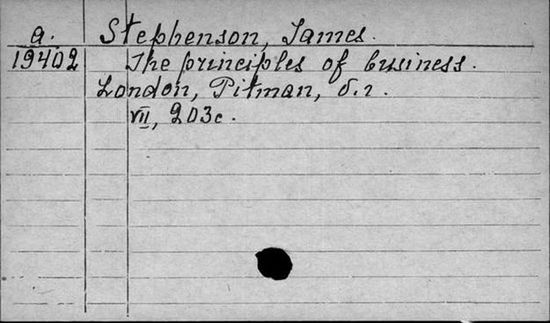 a. Stephenson, James.
19402 The principles of business.
London, Pitman, б.г.
VII, 203с.